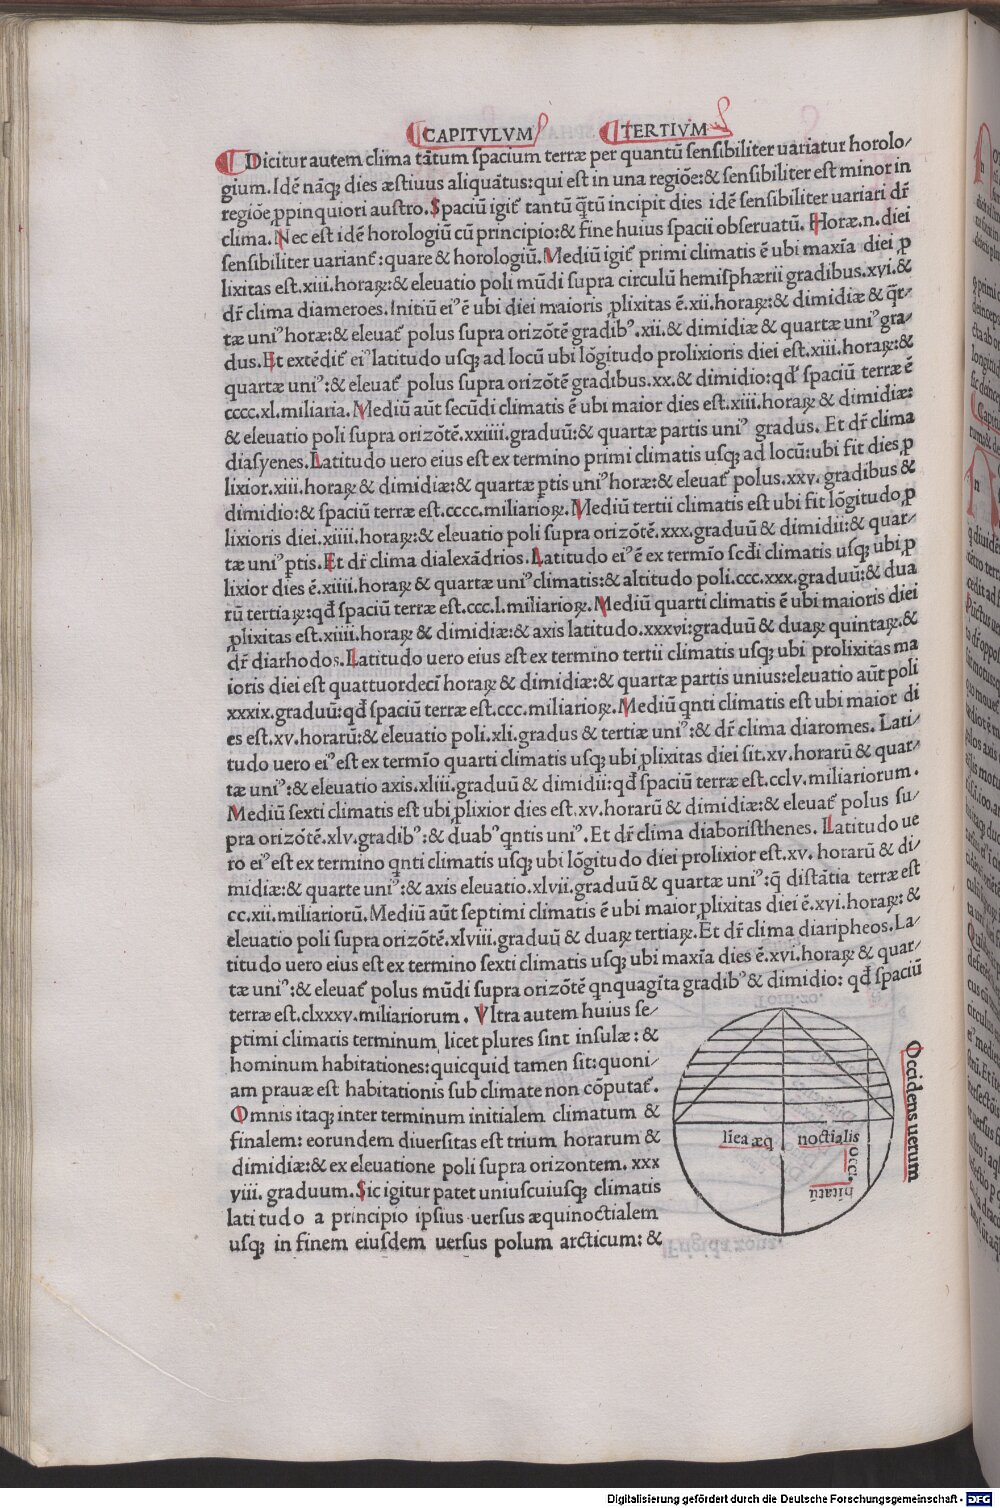 CAPITVLVM TERTIVM
Dicitur autem clima tātum ſpacium terræ per quantū ſenſibiliter uariatur horolo/
gium. Idē nāqꝫ dies æſtiuus aliquātus: qui eſt in una regiōe: & ſenſibiliter est minor in
regiōe ꝓpinquiori auſtro. Spaciū igit᷑ tantū q̄tū incipit dies idē ſenſibiliter uariari dr̄
clima. Nec est idē horologiū cū principio: & fine huius ſpacii obſeruatū. Horæ.n. diei
ſenſibiliter uariant᷑: quare & horologiū. Mediū igit᷑ primi climatis ē ubi maxīa diei ꝓ
lixitas eſt.xiii.horaꝝ: & eleuatio poli mūdi ſupra circulū hemiſphærii gradibus.xvi.&
dr̄ clima diameroes. Initiū eiꝰ ē ubi diei maioris ꝓlixitas ē.xii.horaꝝ: & dimidiæ & q̄r/
tæ uniꝰ horæ: & eleuat᷑ polus ſupra orizōtē gradibꝰ.xii.& dimidiæ & quartæ uniꝰ gra/
dus. Et extēdit᷑ eiꝰ latitudo uſqꝫ ad locū ubi lōgitudo prolixioris diei eſt.xiii.horaꝝ: &
quartæ uniꝰ: & eleuat᷑ polus ſupra orizōtē gradibus.xx.& dimidio: qđ ſpaciū terræ ē
cccc.xl.miliaria. Mediū aūt ſecūdi climatis ē ubi maior dies eſt.xiii.horaꝝ & dimidiæ:
& eleuatio poli ſupra orizōtē.xxiiii.graduū: & quartæ partis uniꝰ gradus. Et dr̄ clima
diaſyenes. Latitudo uero eius eſt ex termino primi climatis uſqꝫ ad locū: ubi fit dies ꝓ
lixior.xiii.horaꝝ & dimidiæ: & quartæ ꝑtis uniꝰ horæ: & eleuat᷑ polus.xxv.gradibus &
dimidio: & ſpaciū terræ eſt.cccc.miliarioꝝ. Mediū tertii climatis eſt ubi fit lōgitudo ꝓ
lixioris diei.xiiii.horaꝝ: & eleuatio poli ſupra orizōtē.xxx.graduū & dimidii: & quar/
tæ uniꝰ ꝑtis. Et dr̄ clima dialexādrios. Latitudo eiꝰ ē ex termīo ſcđi climatis uſqꝫ ubi ꝓ
lixior dies ē.xiiii.horaꝝ & quartæ uniꝰ climatis: & altitudo poli.ccc.xxx.graduū: & dua
rū tertiaꝝ: qđ ſpaciū terræ eſt.ccc.l.miliarioꝝ. Mediū quarti climatis ē ubi maioris diei
ꝓlixitas eſt.xiiii.horaꝝ & dimidiæ: & axis latitudo.xxxvi: graduū & duaꝝ quintaꝝ.&
dr̄ diarhodos. Latitudo uero eius eſt ex termino tertii climatis uſqꝫ ubi prolixitas ma
ioris diei eſt quattuordecī horaꝝ & dimidiæ: & quartæ partis unius: eleuatio aūt poli
xxxix.graduū: qđ ſpaciū terræ eſt.ccc.miliarioꝝ. Mediū qnti climatis eſt ubi maior di
es eſt.xv.horarū: & eleuatio poli.xli.gradus & tertiæ uniꝰ: & dr̄ clima diaromes. Lati/
tudo uero eiꝰ eſt ex termīo quarti climatis uſqꝫ ubi ꝓlixitas diei ſit.xv.horarū & quar/
tæ uniꝰ: & eleuatio axis.xliii.graduū & dimidii: qđ ſpaciū terræ eſt.cclv.miliariorum.
Mediū ſexti climatis eſt ubi ꝓlixior dies eſt.xv.horarū & dimidiæ: & eleuat᷑ polus ſu/
pra orizōtē.xlv.gradibꝰ: & duabꝰ qntis uniꝰ. Et dr̄ clima diaboriſthenes. Latitudo ue
ro eiꝰ eſt ex termino qnti climatis uſqꝫ ubi lōgitudo diei prolixior eſt.xv. horarū & di/
midiæ: & quarte uniꝰ: & axis eleuatio.xlvii.graduū & quartæ uniꝰ: q̄ diſtātia terræ eſt
cc.xii.miliariorū. Mediū aūt ſeptimi climatis ē ubi maior ꝓlixitas diei ē.xvi.horaꝝ: &
eleuatio poli ſupra orizōtē.xlviii.graduū & duaꝝ tertiaꝝ. Et dr̄ clima diaripheos. La/
titudo uero eius eſt ex termino ſexti climatis uſqꝫ ubi maxīa dies ē.xvi.horaꝝ & quar/
tæ uniꝰ: & eleuat᷑ polus mūdi ſupra orizōtē qnquagīta gradibꝰ & dimidio: qđ ſpaciū
terræ eſt.clxxxv.miliariorum. Vltra autem huius ſe/
ptimi climatis terminum licet plures ſint inſulæ: &
hominum habitationes: quicquid tamen ſit: quoni/
am prauæ eſt habitationis ſub climate non cōputat᷑.
Omnis itaqꝫ inter terminum initialem climatum &
finalem: eorundem diuerſitas eſt trium horarum &
dimidiæ: & ex eleuatione poli ſupra orizontem. xxx
viii. graduum. Sic igitur patet uniuſcuiuſqꝫ climatis
latitudo a principio ipſius uerſus æquinoctialem
uſqꝫ in finem eiuſdem uerſus polum arcticum: &
Occidens uerum
liea æq noctialis
occ.
hitatū
Digitalisierung gefördert durch die Deutsche Forschungsgemeinschaft - DFG